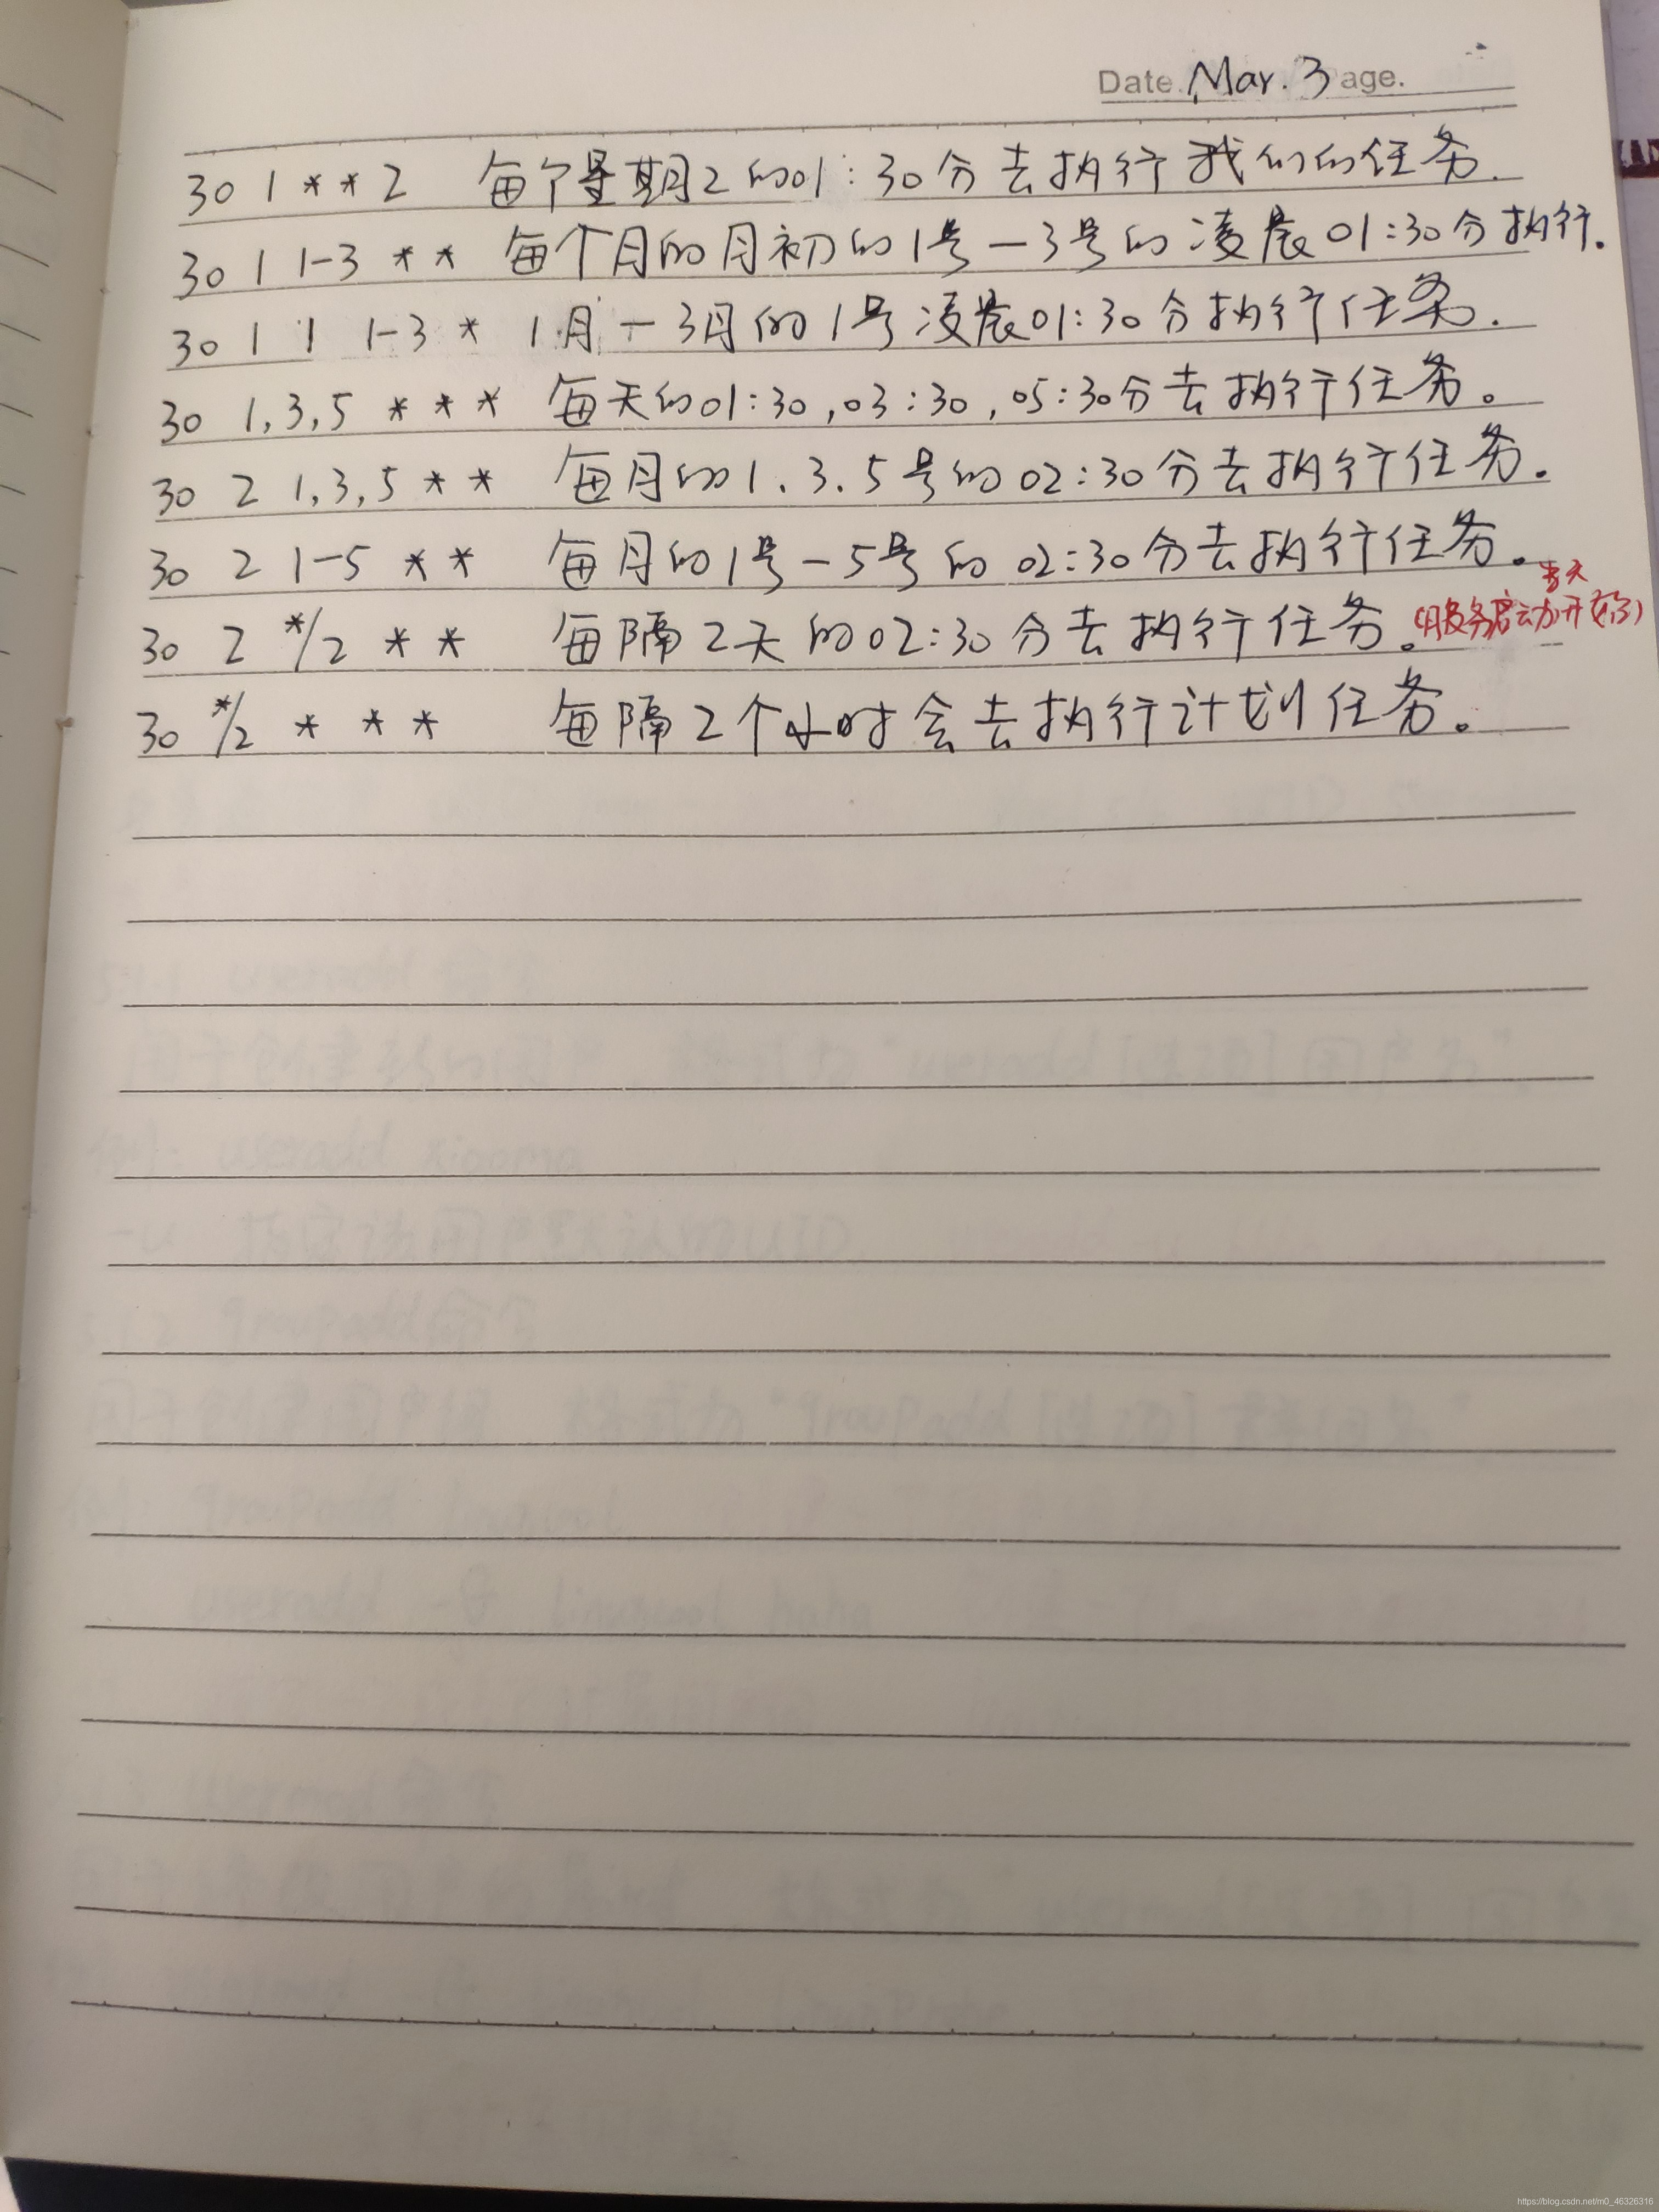 Date. Mar. 3 age.
30 1 * * 2 每个星期2的01:30分去执行我们的任务.
30 1 1-3 * * 每个月的月初的1号-3号的凌晨01:30分执行.
30 1 1 1-3 * 1月-3月的1号凌晨01:30分执行任务.
30 1,3,5 * * * 每天的01:30,03:30,05:30分去执行任务。
30 2 1,3,5 * * 每月的1.3.5号的02:30分去执行任务。
30 2 1-5 * * 每月的1号-5号的02:30分去执行任务。
当天
30 2 */2 * * 每隔2天的02:30分去执行任务。(服务启动开始)
30 */2 * * * 每隔2个小时会去执行计划任务。
https://blog.csdn.net/m0_46326316